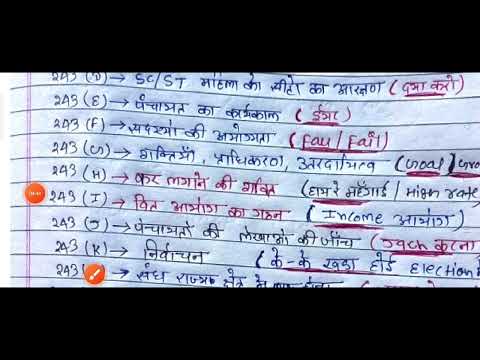 243 (D) → SC/ST महिला को सीटों का आरक्षण (दया करो)
243 (E) → पंचायत का कार्यकाल (ईयर)
243 (F) → सदस्यों की अयोग्यता (Fail / फेल)
243 (G) → शक्तियाँ, प्राधिकरण, उत्तरदायित्व (Goal
243 (H) → कर लगाने की शक्ति (हायरे महँगाई / High rate
243 (I) → वित आयोग का गठन (Income आयोग)
243 (J) → पंचायतों की लेखाओं की जाँच (Jach करना
243 (K) → निर्वाचन (के-के खड़ा होई election
243 → संघ राज्य क्षेत्र